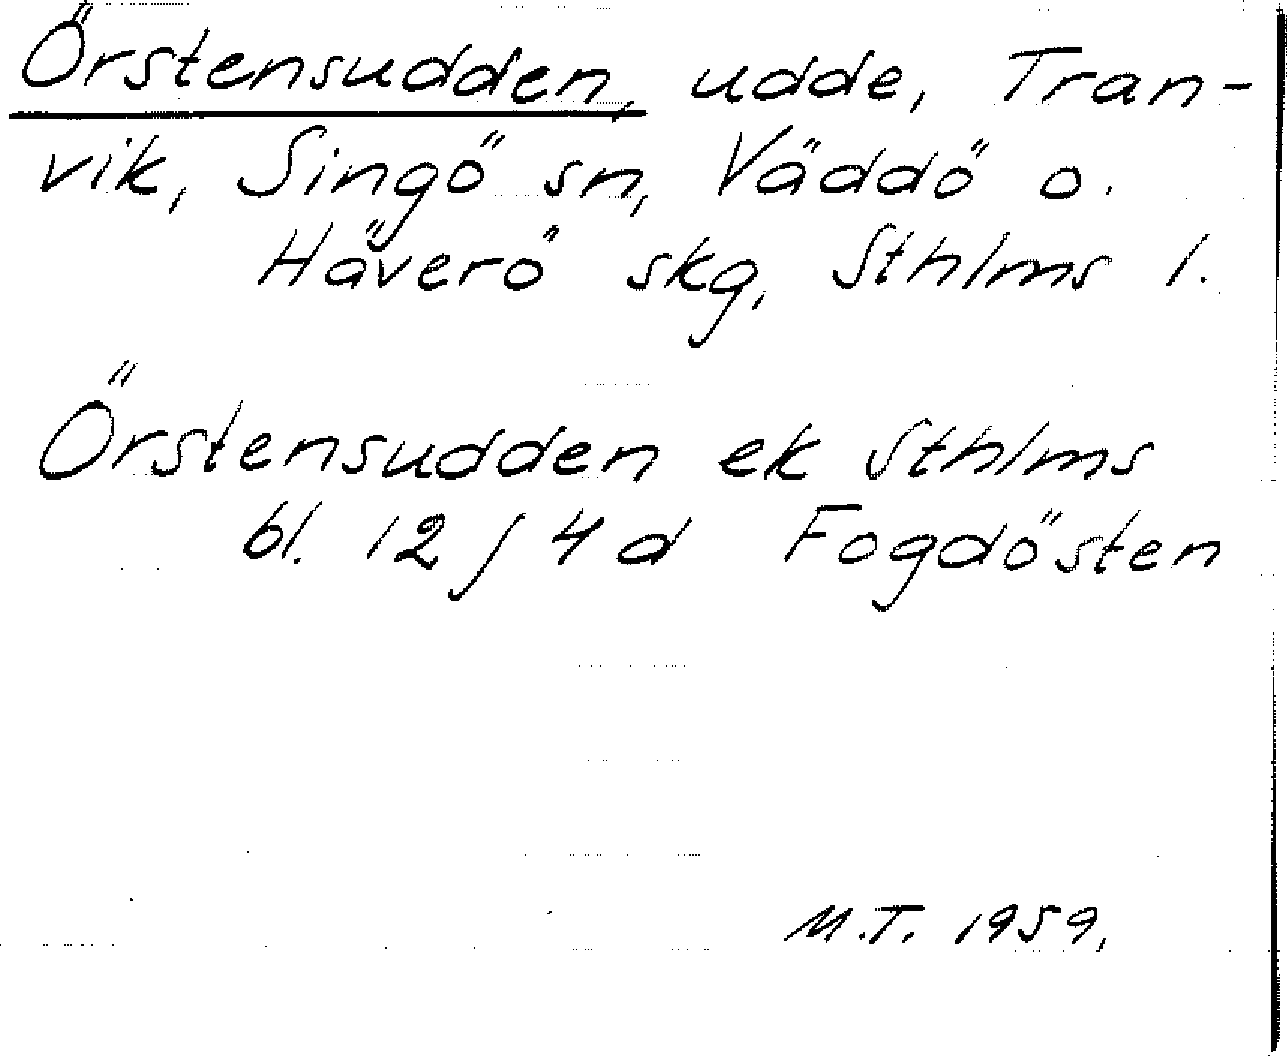 Örstensudden, udde, Tran-
vik, Singö sn, Väddö o.
Häverö skg, Sthlms l.
Örstensudden ek Sthlms
bl. 12 J 4 d Fogdösten
M.T. 1959.